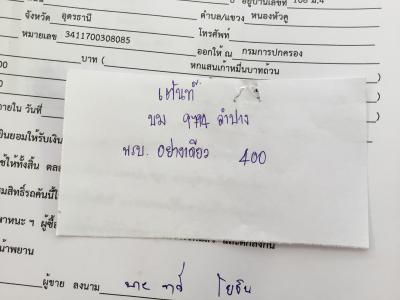 อยู่บ้านเลขที่ 106 ม.4
จังหวัด อุดรธานี ตำบล/แขวง หนองหัวคู
หมายเลข 3411700308085 โทรศัพท์
ออกให้ ณ กรมการปกครอง
00 บาท ( หกแสนเก้าหมื่นบาทถ้วน
เต้นท์
ภายใน วันที่ บม 9794 ลำปาง
ยินยอมให้รับเงิน พรบ. อย่างเดียว 400
ใช้ให้ทั้งสิ้น ตลอ
รมสิทธิ์รถคันนี้ใ
พาหนะ ฯ ผู้ซื้อ
น้าพยาน
ผู้ขาย ลงนาม นาย